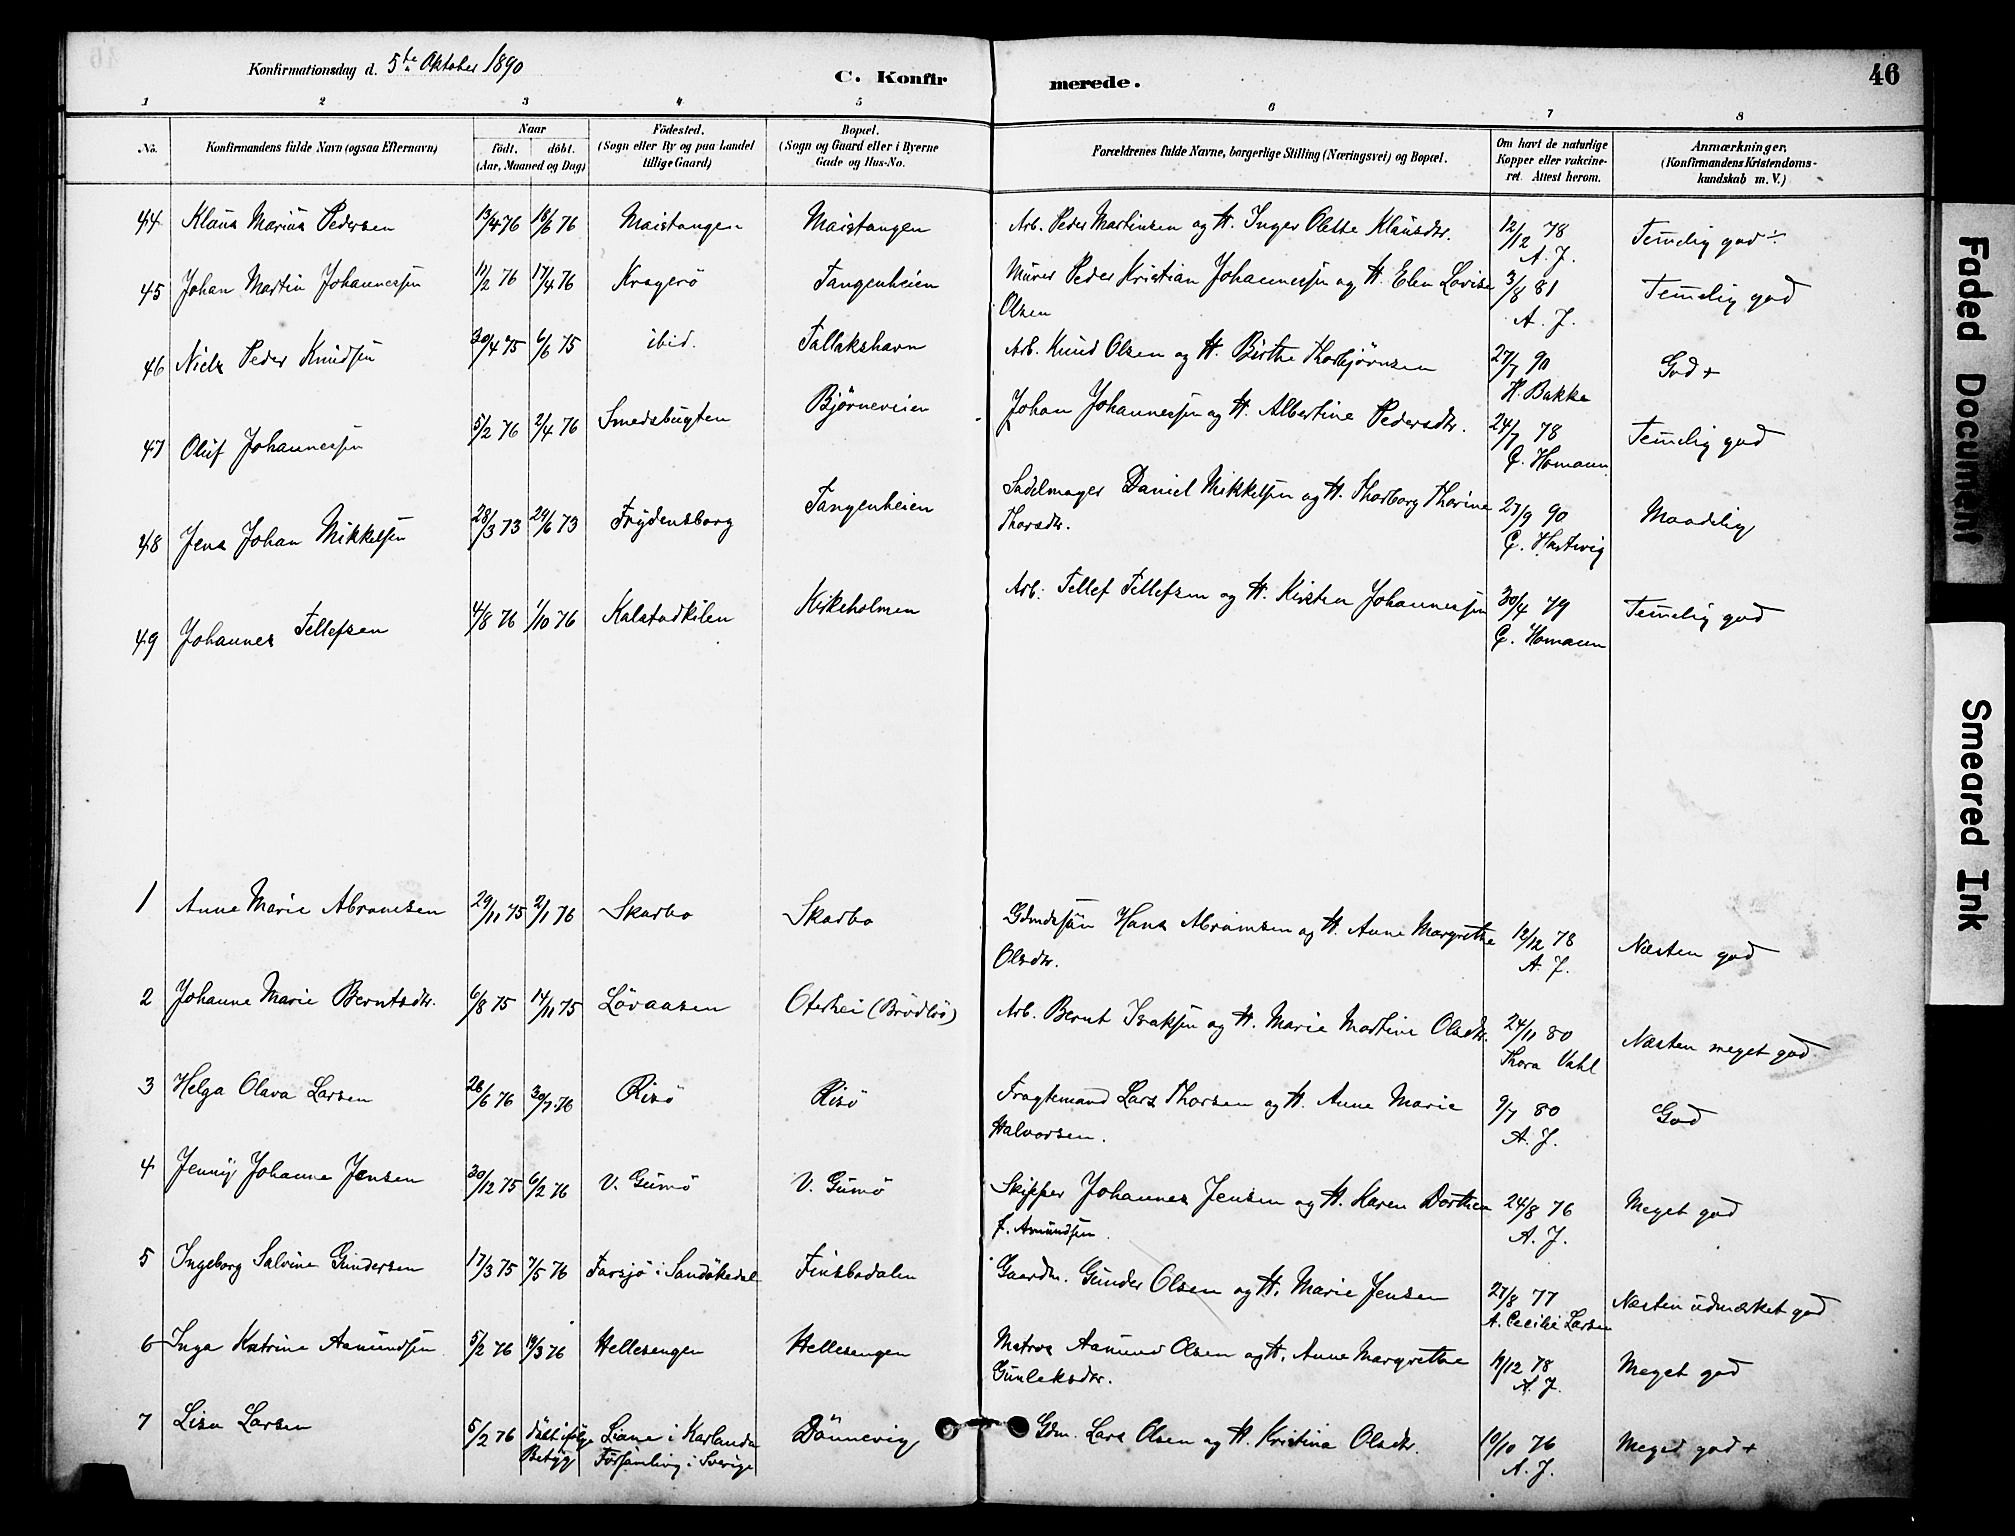 Konfirmationsdag d. 5te Oktober 1890
C. Konfirmerede.
46
1 2 3 4 5 6 7 8
No.
Konfirmandens fulde Navn (ogsaa Efternavn)
Naar
födt. döbt.
(Aar, Maaned og Dag)
Födested.
(Sogn eller By og paa Landet
tillige Gaard)
Bopæl.
(Sogn og Gaard eller i Byerne
Gade og Hus-No.
Forældrenes fulde Navne, borgerlige Stilling (Næringsvei) og Bopæl.
Om havt de naturlige
Kopper eller vakcine-
ret. Attest herom.
Anmærkninger.
(Konfirmandens Kristendoms-
kundskab m. V.)
44 Klaus Marius Pedersen 13/4 76 18/6 76 Maistangen Maistangen Arb. Peder Martinsen og H. Inger Olette Klausdtr. 12/12 78 Temelig god ÷
A. J.
45 Johan Martin Johannessen 11/2 76 17/4 76 Kragerö Tangenheien Murer Peder Kristian Johannessen og H. Elen Lovise 3/8 81 Temelig god
Olsen A. J.
46 Niels Peder Knudsen 30/4 75 6/6 75 ibid. Tallakshavn Arb. Knud Olsen og H. Birthe Thorbjörnsen 27/7 90 God +
H. Bakke
47 Oluf Johannessen 5/2 76 2/4 76 Smedsbugten Björneveien Johan Johannessen og H. Albertine Pedersdtr. 24/7 78 Temelig god
C. Homann
48 Jens Johan Mikkelsen 28/3 73 24/6 73 Frydensborg Tangenheien Sadelmager Daniel Mikkelsen og H. Thorborg Thorine 27/9 90 Maadelig
Thorsdtr. C. Hartvig
49 Johannes Tellefsen 4/8 76 1/10 76 Kalstadkilen Kirkeholmen Arb. Tellef Tellefsen og H. Kirsten Johannessen 30/4 79 Temelig god
C. Homann
1 Anne Marie Abramsen 29/11 75 2/1 76 Skarbo Skarbo Gdmdssön Hans Abramsen og H. Anne Margrethe 12/12 78 Næsten god
Olsdtr. A. J.
2 Johanne Marie Berntsdtr. 6/8 75 14/11 75 Lövaasen Oterhei (Brödlös) Arb. Bernt Isaksen og H. Marie Martine Olsdtr. 24/11 80 Næsten meget god
Thora Vahl
3 Helga Olava Larsen 26/6 76 30/7 76 Risö Risö Fragtemand Lars Thorsen og H. Anne Marie 9/7 80 God
Halvorsen. A. J.
4 Jenny Johanne Jensen 30/12 75 6/2 76 V. Gumö V. Gumö Skipper Johannes Jensen og H. Karen Dorthea 24/8 76 Meget god
f. Amundsen. A. J.
5 Ingeborg Salvine Gundersen 17/3 75 7/5 76 Farsjö i Sandökedal Finsbodalen Gaardm. Gunder Olsen og H. Marie Jensen 27/8 77 Næsten udmærket god
A. Cecilie Larsen
6 Inga Katrine Aamundsen 5/2 76 19/3 76 Hellesengen Hellesengen Matros Aamund Olsen og H. Anne Margrethe 11/12 78 Meget god
Gunleksdtr. A. J.
7 Lisa Larsen 5/2 76 döbt ifölge Liane i Karlanda Dönnevig Gdm. Lars Olsen og H. Kristina Olsdtr. 10/10 76 Meget god +
Betyg Församling i Sverige A. J.
Faded Document
Smeared Ink